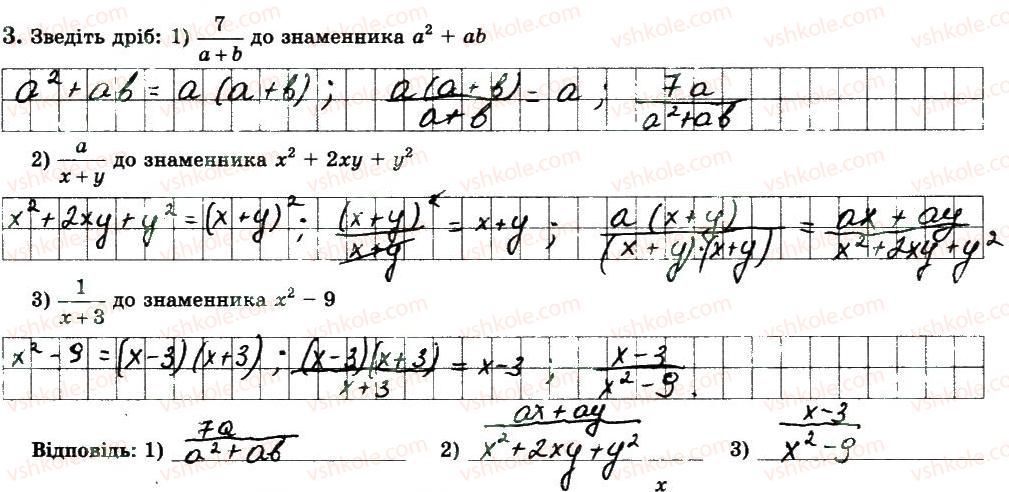 3. Зведіть дріб: 1) 7/(a + b) до знаменника a² + ab
a² + ab = a (a + b) ; a(a + b)/(a + b) = a ; 7a/(a² + ab)
2) a/(x + y) до знаменника x² + 2xy + y²
x² + 2xy + y² = (x + y)² ; (x + y)²/(x + y) = x + y ; a (x + y)/((x + y)·(x + y)) = (ax + ay)/(x² + 2xy + y²)
3) 1/(x + 3) до знаменника x² − 9
x² − 9 = (x − 3)(x + 3) ; (x − 3)(x + 3)/(x + 3) = x − 3 ; (x − 3)/(x² − 9) .
Відповідь: 1) 7a/(a² + ab) 2) (ax + ay)/(x² + 2xy + y²) 3) (x − 3)/(x² − 9)
x
vshkole.com